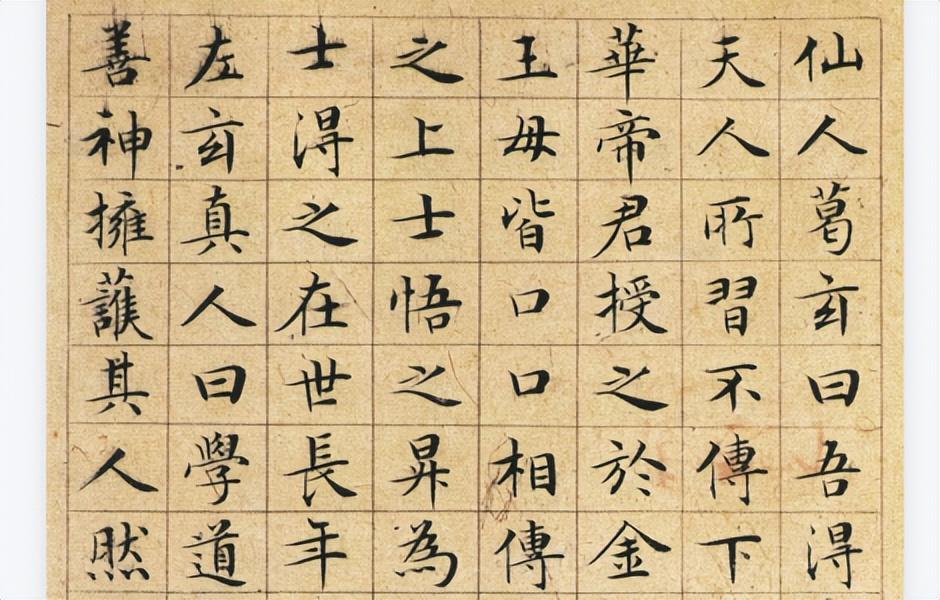 仙人葛玄曰吾得
天人所習不傳下
華帝君授之於金
王母皆口口相傳
之上士悟之昇為
士得之在世長年
左玄真人曰學道
善神擁護其人然